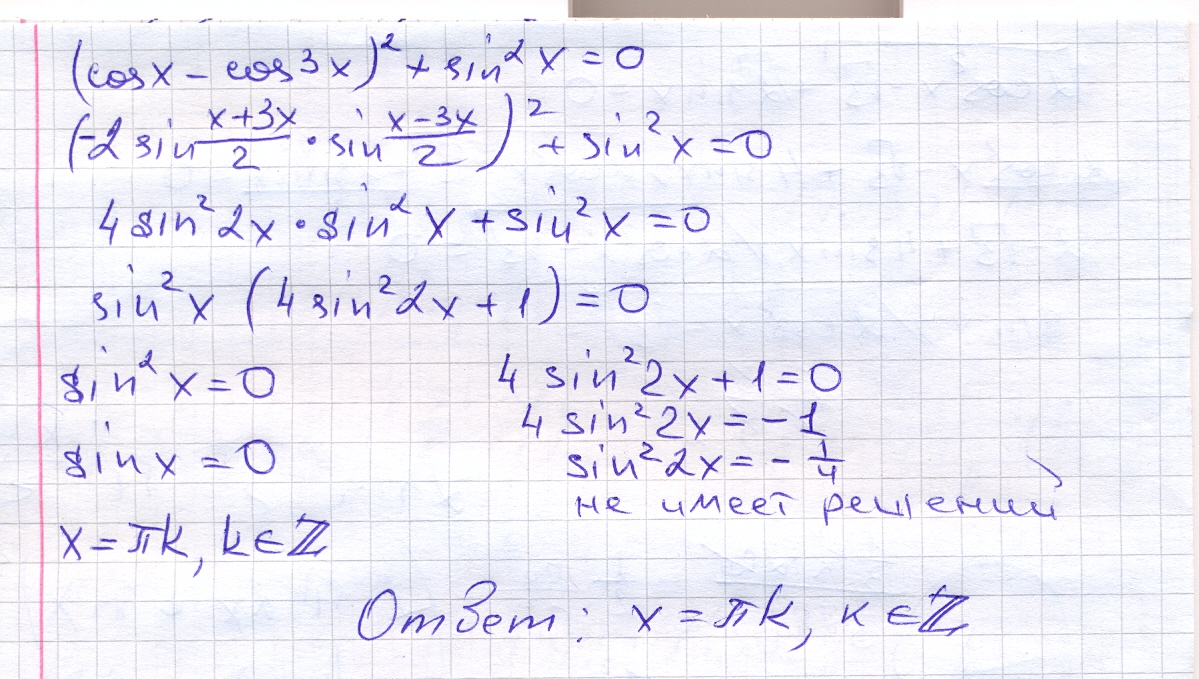 (cosx - cos3x)² + sin²x = 0
(-2 sin (x+3x)/2 · sin (x-3x)/2)² + sin²x = 0
4 sin²2x · sin²x + sin²x = 0
sin²x (4 sin²2x + 1) = 0
sin²x = 0
sinx = 0
x = πk, k∈ℤ
4 sin²2x + 1 = 0
4 sin²2x = -1
sin²2x = -1/4
не имеет решений
Ответ: x = πk, k∈ℤ